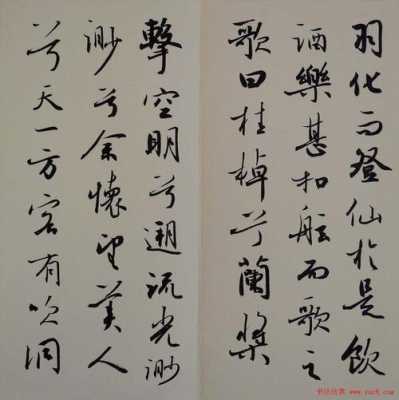 羽化而登仙於是飲
酒樂甚扣舷而歌之
歌曰桂棹兮蘭槳
擊空明兮遡流光渺
渺兮余懷望美人
兮天一方客有吹洞